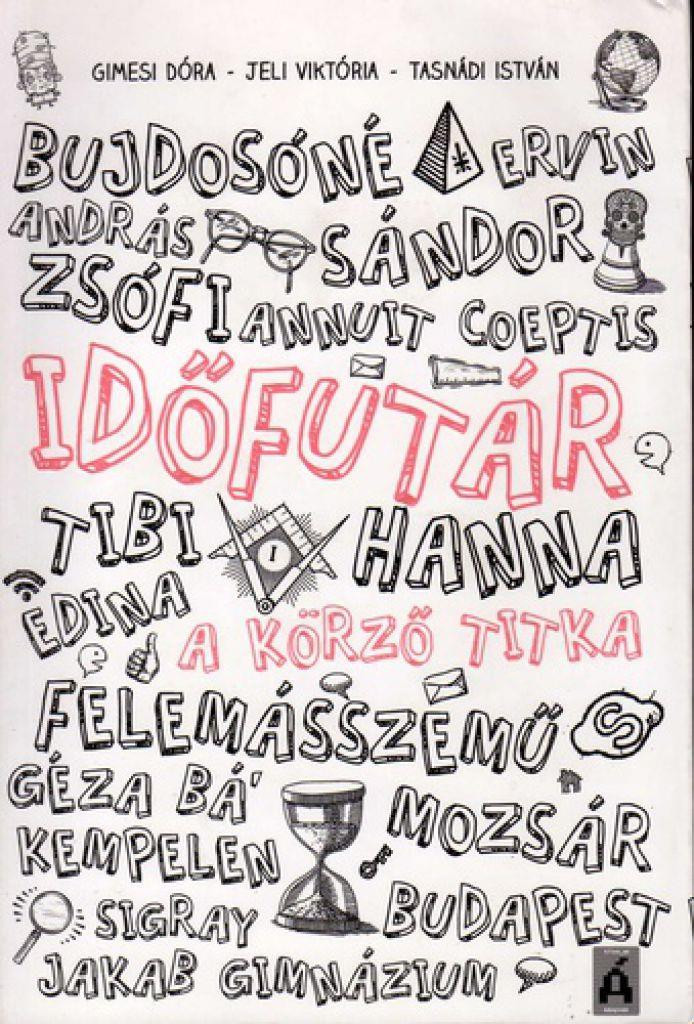 GIMESI DÓRA - JELI VIKTÓRIA - TASNÁDI ISTVÁN
BUJDOSÓNÉ ERVIN
ANDRÁS SÁNDOR
ZSÓFI ANNUIT COEPTIS
IDŐFUTÁR
TIBI HANNA
EDINA
A KÖRZŐ TITKA
FELEMÁSSZEMŰ
GÉZA BÁ'
MOZSÁR
KEMPELEN
BUDAPEST
SIGRAY
JAKAB GIMNÁZIUM